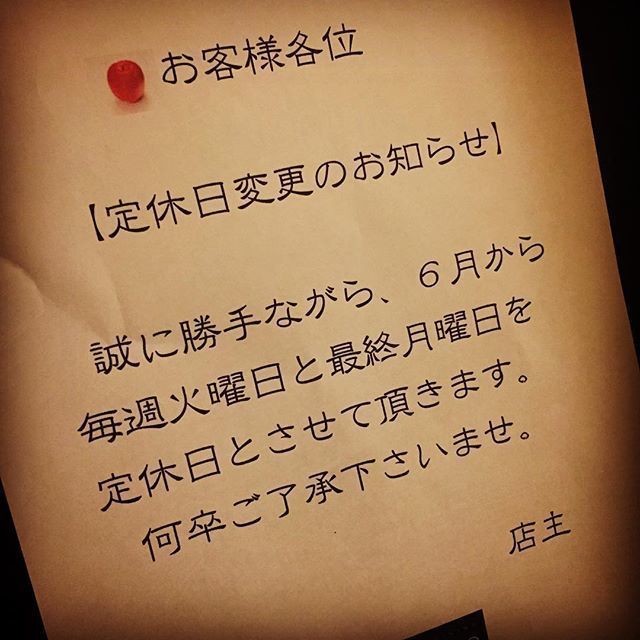 お客様各位
【定休日変更のお知らせ】
誠に勝手ながら、６月から
毎週火曜日と最終月曜日を
定休日とさせて頂きます。
何卒ご了承下さいませ。
店主